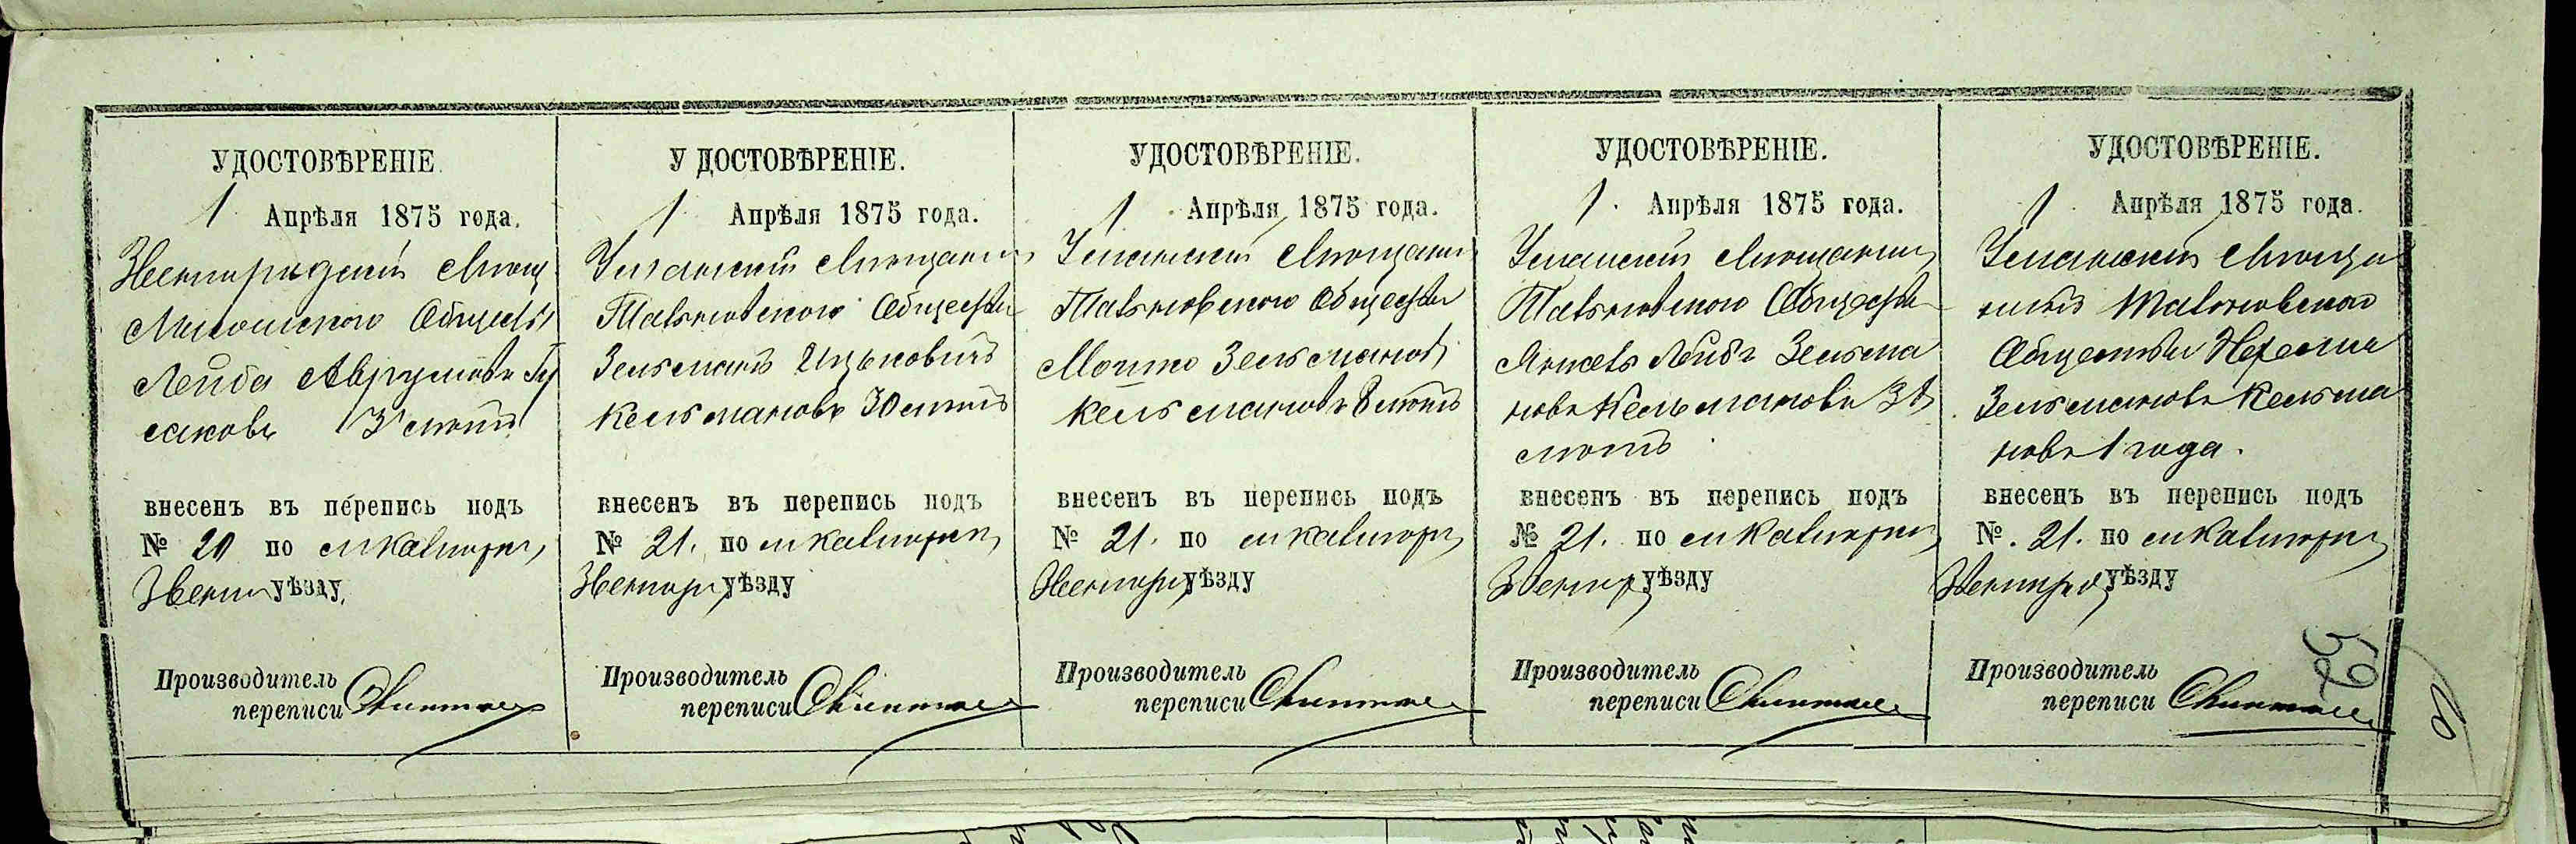 УДОСТОВѢРЕНІЕ.
1 Апрѣля 1875 года.
Звенигродскій Мѣщ
Общества
Лейба Аврумовъ Гу
саковъ 3 лѣтъ
внесенъ въ перепись подъ
№ 20 по м Катиори
Звениг уѣзду.
Производитель
переписи
У ДОСТОВѢРЕНІЕ.
1 Апрѣля 1875 года.
Уманскій Мѣщанинъ
Тальновского Общества
Зельманъ Ицьковичъ
Кельмановъ 30 лѣтъ
внесенъ въ перепись подъ
№ 21. по м Катиори
Звенигор уѣзду
Производитель
переписи
УДОСТОВѢРЕНІЕ.
1 Апрѣля 1875 года.
Уманскій Мѣщанин
Тальновского Общества
Мошко Зельмановъ
Кельмановъ 8 лѣтъ
внесенъ въ перепись подъ
№ 21. по м Катиори
Звенигор уѣзду
Производитель
переписи
УДОСТОВѢРЕНІЕ.
1. Апрѣля 1875 года.
Уманскій Мѣщанин
Тальновского Общества
Янкель Лейбъ Зельма
новъ Кельмановъ
лѣтъ
внесенъ въ перепись подъ
№ 21. по м Катиори
Звениг уѣзду
Производитель
переписи
УДОСТОВѢРЕНІЕ.
1 Апрѣля 1875 года.
Уманскій Мѣща
нинъ Тальновского
Общества Нехемия
Зельмановъ Кельма
новъ 1 года.
внесенъ въ перепись подъ
№. 21. по м Катиори
Звенигрод уѣзду
Производитель
переписи